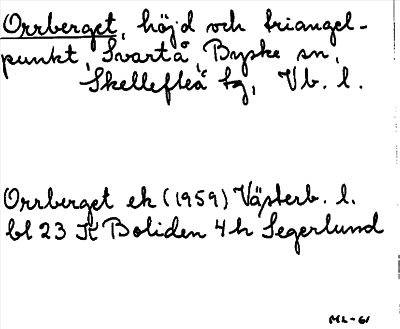 Orrberget, höjd och triangel-
punkt, Svartå, Byske sn,
Skellefteå tg, Vb. l.
Orrberget ek (1959) Västerb. l.
bl 23 K Boliden 4 h Segerlund
ML-61